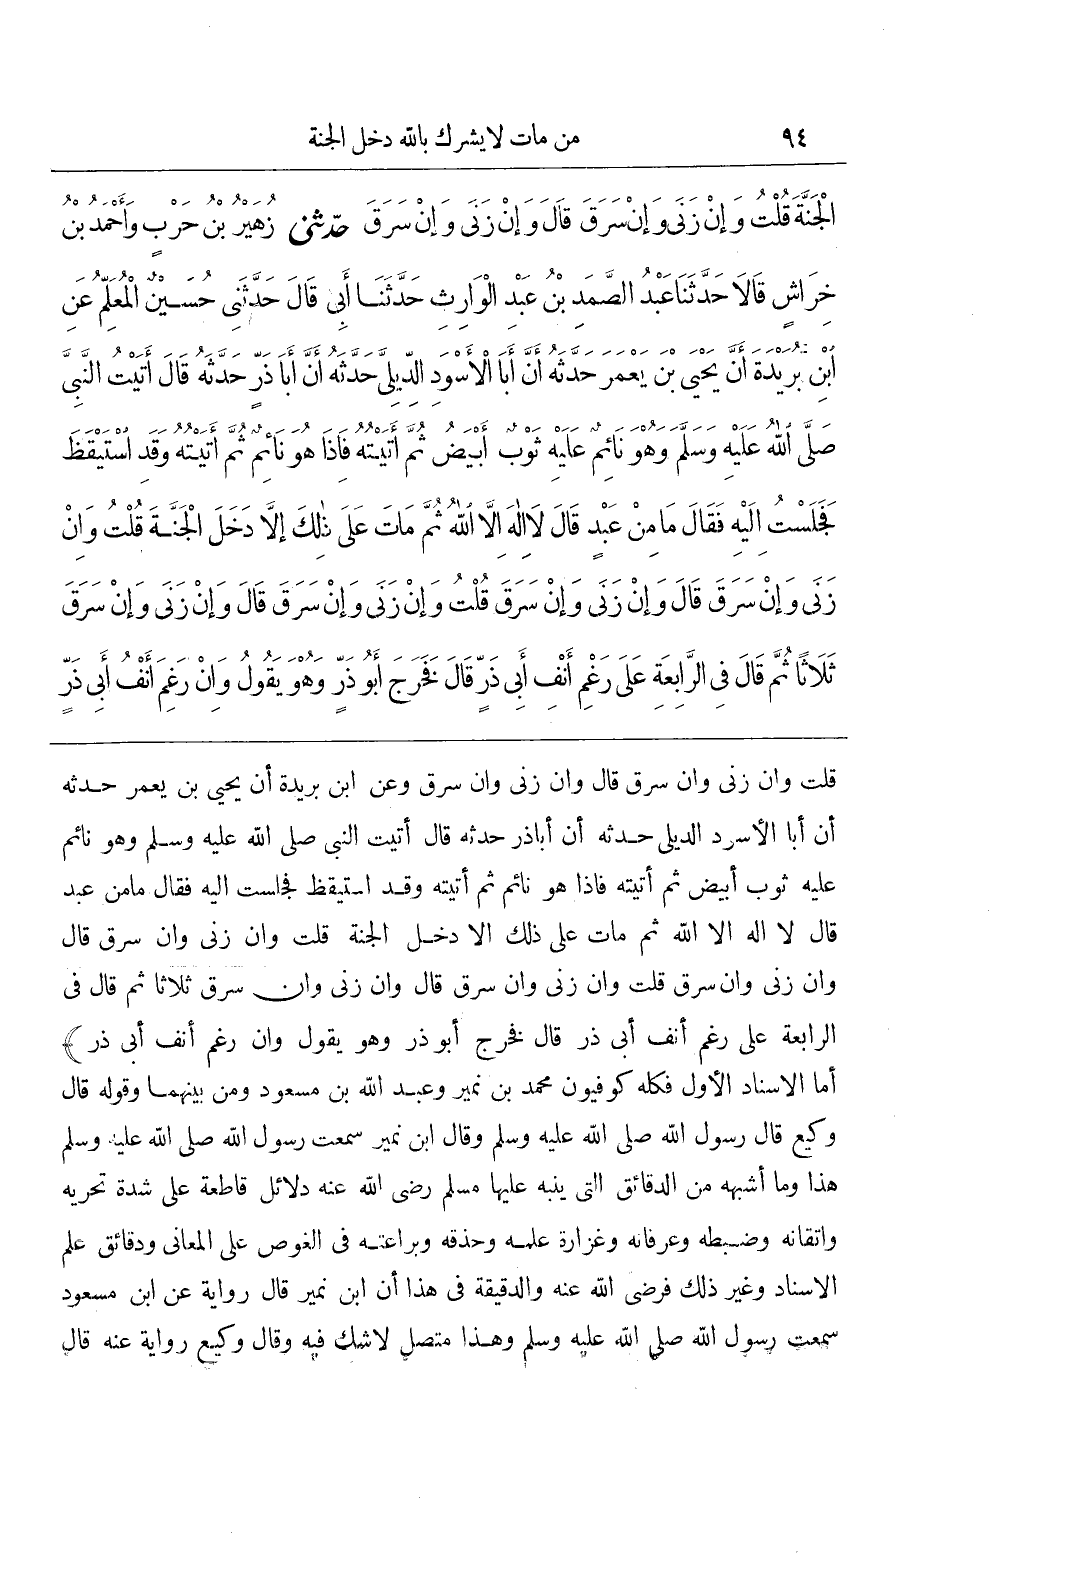 ٩٤ من مات لايشرك بالله دخل الجنة
الْجَنَّةَ قُلْتُ وَإِنْ زَنَى وَإِنْ سَرَقَ قَالَ وَإِنْ زَنَى وَإِنْ سَرَقَ حَدَّثَنِي زُهَيْرُ بْنُ حَرْبٍ وَأَحْمَدُ بْنُ
خِرَاشٍ قَالَا حَدَّثَنَا عَبْدُ الصَّمَدِ بْنُ عَبْدِ الْوَارِثِ حَدَّثَنَا أَبِي قَالَ حَدَّثَنِي حُسَيْنٌ الْمُعَلِّمُ عَنِ
ابْنِ بُرَيْدَةَ أَنَّ يَحْيَى بْنَ يَعْمَرَ حَدَّثَهُ أَنَّ أَبَا الْأَسْوَدِ الدِّيلِيَّ حَدَّثَهُ أَنَّ أَبَا ذَرٍّ حَدَّثَهُ قَالَ أَتَيْتُ النَّبِيَّ
صَلَّى اللهُ عَلَيْهِ وَسَلَّمَ وَهُوَ نَائِمٌ عَلَيْهِ ثَوْبٌ أَبْيَضُ ثُمَّ أَتَيْتُهُ فَإِذَا هُوَ نَائِمٌ ثُمَّ أَتَيْتُهُ وَقَدِ اسْتَيْقَظَ
فَجَلَسْتُ إِلَيْهِ فَقَالَ مَا مِنْ عَبْدٍ قَالَ لَا إِلٰهَ إِلَّا اللهُ ثُمَّ مَاتَ عَلَى ذٰلِكَ إِلَّا دَخَلَ الْجَنَّةَ قُلْتُ وَإِنْ
زَنَى وَإِنْ سَرَقَ قَالَ وَإِنْ زَنَى وَإِنْ سَرَقَ قُلْتُ وَإِنْ زَنَى وَإِنْ سَرَقَ قَالَ وَإِنْ زَنَى وَإِنْ سَرَقَ
ثَلَاثًا ثُمَّ قَالَ فِي الرَّابِعَةِ عَلَى رَغْمِ أَنْفِ أَبِي ذَرٍّ قَالَ فَخَرَجَ أَبُو ذَرٍّ وَهُوَ يَقُولُ وَإِنْ رَغِمَ أَنْفُ أَبِي ذَرٍّ
قلت وان زنى وان سرق قال وان زنى وان سرق وعن ابن بريدة أن يحيى بن يعمر حدثه
أن أبا الأسود الديلى حدثه أن أباذر حدثه قال أتيت النبى صلى الله عليه وسلم وهو نائم
عليه ثوب أبيض ثم أتيته فاذا هو نائم ثم أتيته وقد استيقظ فجلست اليه فقال مامن عبد
قال لا اله الا الله ثم مات على ذلك الا دخل الجنة قلت وان زنى وان سرق قال
وان زنى وان سرق قلت وان زنى وان سرق قال وان زنى وان سرق ثلاثا ثم قال فى
الرابعة على رغم أنف أبى ذر قال فخرج أبو ذر وهو يقول وان رغم أنف أبى ذر ﴾
أما الاسناد الأول فكله كوفيون محمد بن نمير وعبد الله بن مسعود ومن بينهما وقوله قال
وكيع قال رسول الله صلى الله عليه وسلم وقال ابن نمير سمعت رسول الله صلى الله عليه وسلم
هذا وما أشبهه من الدقائق التى ينبه عليها مسلم رضى الله عنه دلائل قاطعة على شدة تحريه
واتقانه وضبطه وعرفانه وغزارة علمه وحذقه وبراعته فى الغوص على المعانى ودقائق علم
الاسناد وغير ذلك فرضى الله عنه والدقيقة فى هذا أن ابن نمير قال رواية عن ابن مسعود
سمعت رسول الله صلى الله عليه وسلم وهذا متصل لاشك فيه وقال وكيع رواية عنه قال